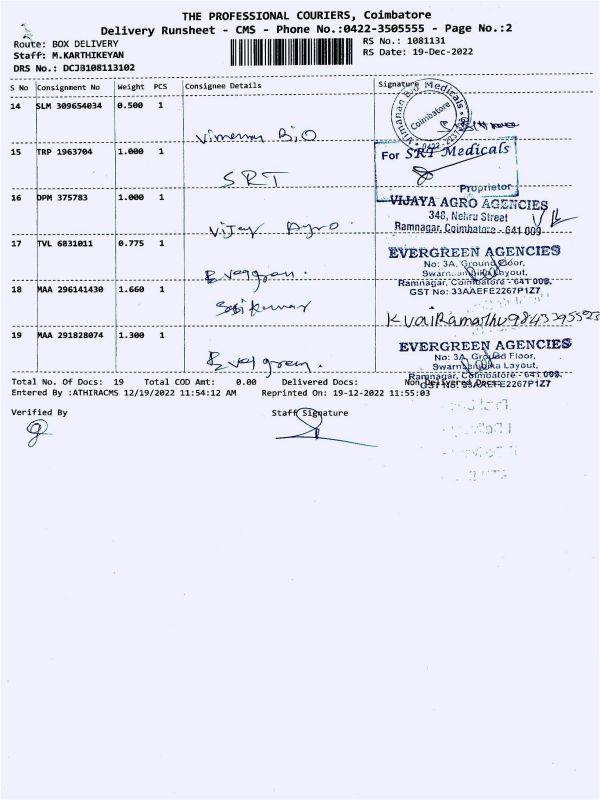 THE PROFESSIONAL COURIERS, Coimbatore
Delivery Runsheet - CMS - Phone No.:0422-3505555 - Page No.:2
Route: BOX DELIVERY
RS No.: 1081131
Staff: M.KARTHIKEYAN
RS Date: 19-Dec-2022
DRS No.: DCJB108113102
S No Consignment No Weight PCS Consignee Details Signature
14 SLM 309654034 0.500 1
Bio
Vimanan Bio Medicals
Coimbatore
15 TRP 1963704 1.000 1
SRT
For SRT Medicals
Proprietor
16 DPM 375783 1.000 1
Vijay Agro
VIJAYA AGRO AGENCIES
348, Nehru Street
Ramnagar, Coimbatore - 641 009
17 TVL 6831011 0.775 1
Evergreen.
EVERGREEN AGENCIES
No: 3A, Ground Floor,
Swarnambika Layout,
Ramnagar, Coimbatore - 641 009.
GST No: 33AAEFE2267P1Z7
18 MAA 296141430 1.660 1
Sasikumar
19 MAA 291828074 1.300 1
Evergreen.
EVERGREEN AGENCIES
No: 3A, Ground Floor,
Swarnambika Layout,
Ramnagar, Coimbatore - 641 009.
GST No: 33AAEFE2267P1Z7
Total No. Of Docs: 19 Total COD Amt: 0.00 Delivered Docs: Non Delivered Docs:
Entered By :ATHIRACMS 12/19/2022 11:54:12 AM Reprinted On: 19-12-2022 11:55:03
Verified By Staff Signature